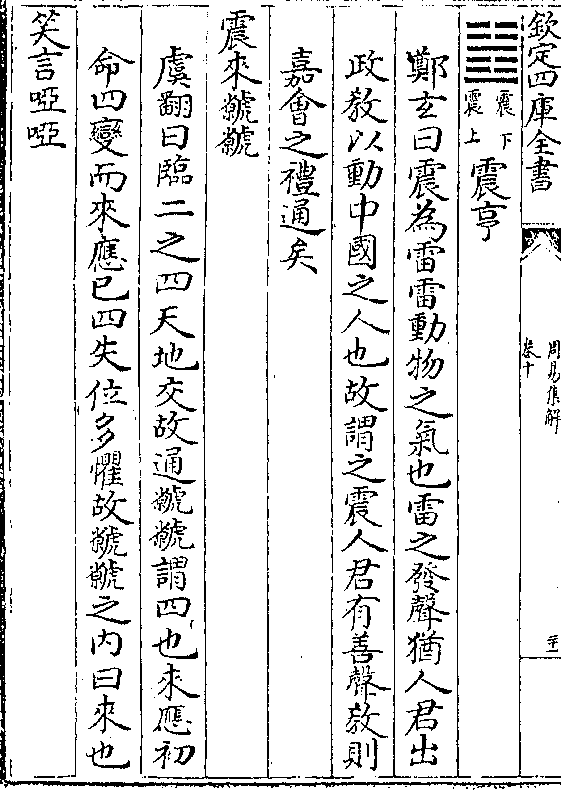 欽定四庫全書
周易集解
卷十
二十一
震下
震上
震亨
鄭玄曰震為雷雷動物之氣也雷之發聲猶人君出
政教以動中國之人也故謂之震人君有善聲教則
嘉會之禮通矣
震來虩虩
虞翻曰臨二之四天地交故通虩虩謂四也來應初
命四變而來應已四失位多懼故虩虩之內曰來也
笑言啞啞